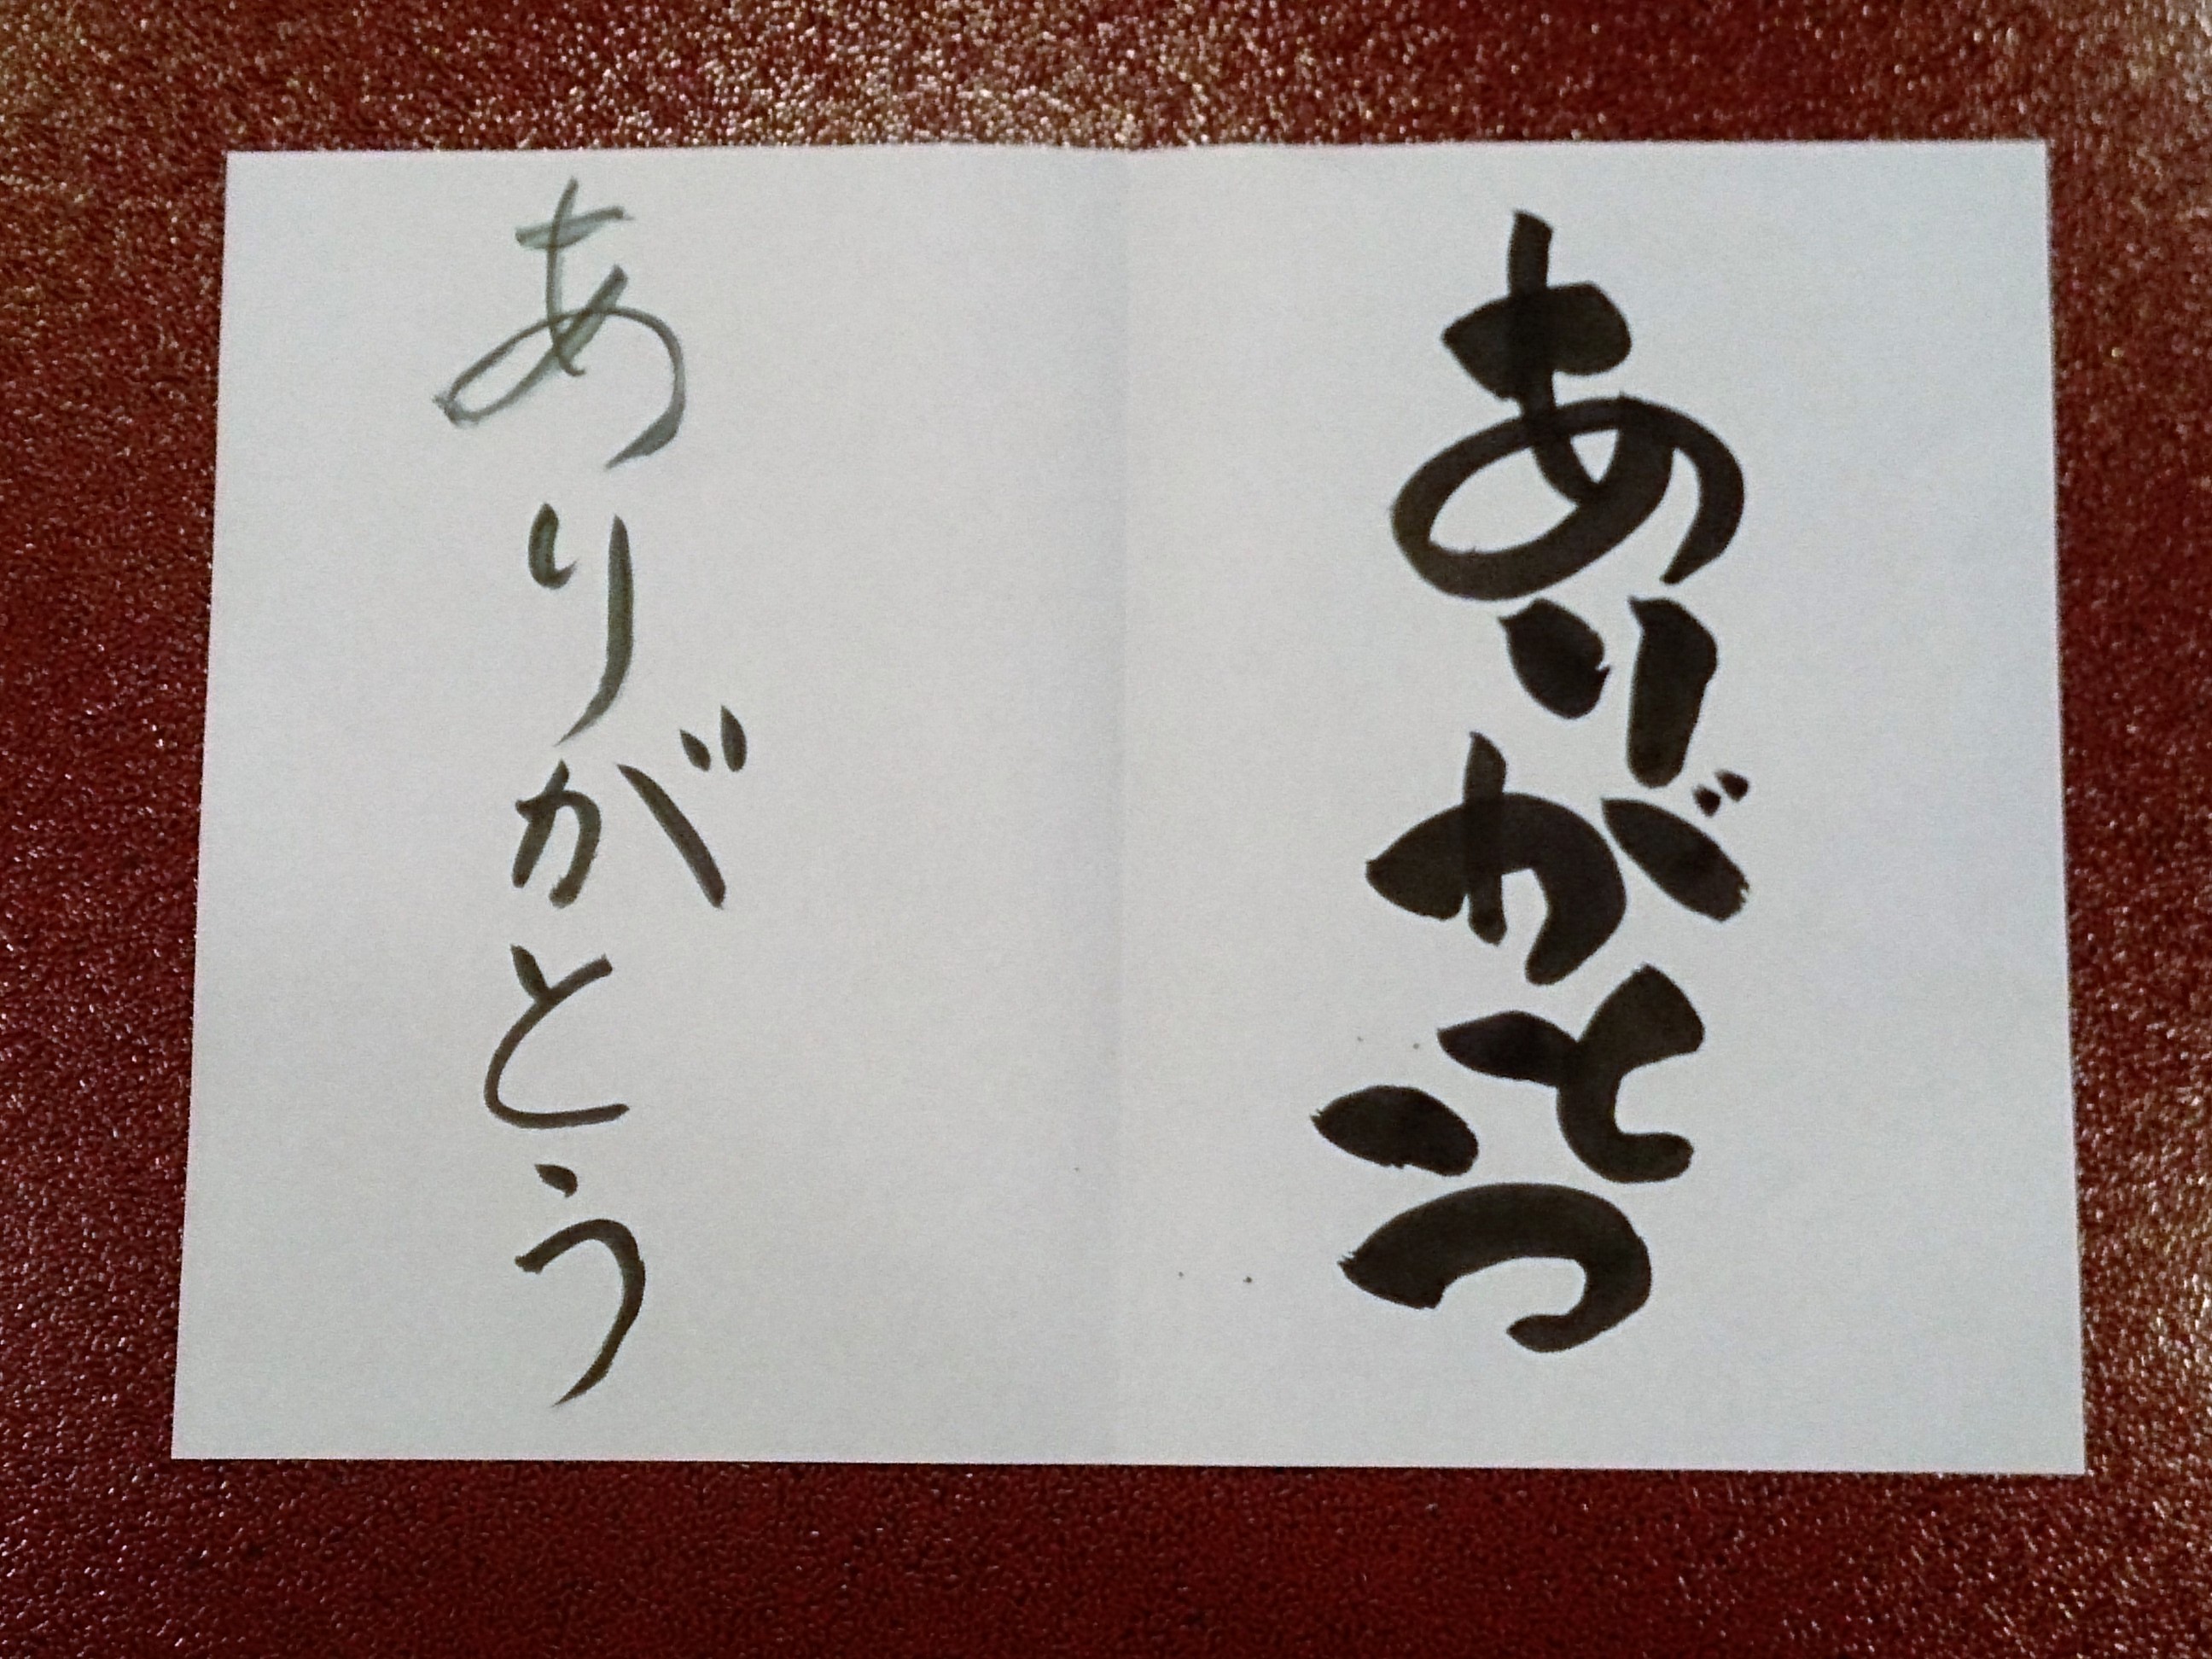 ありがとう
ありがとう